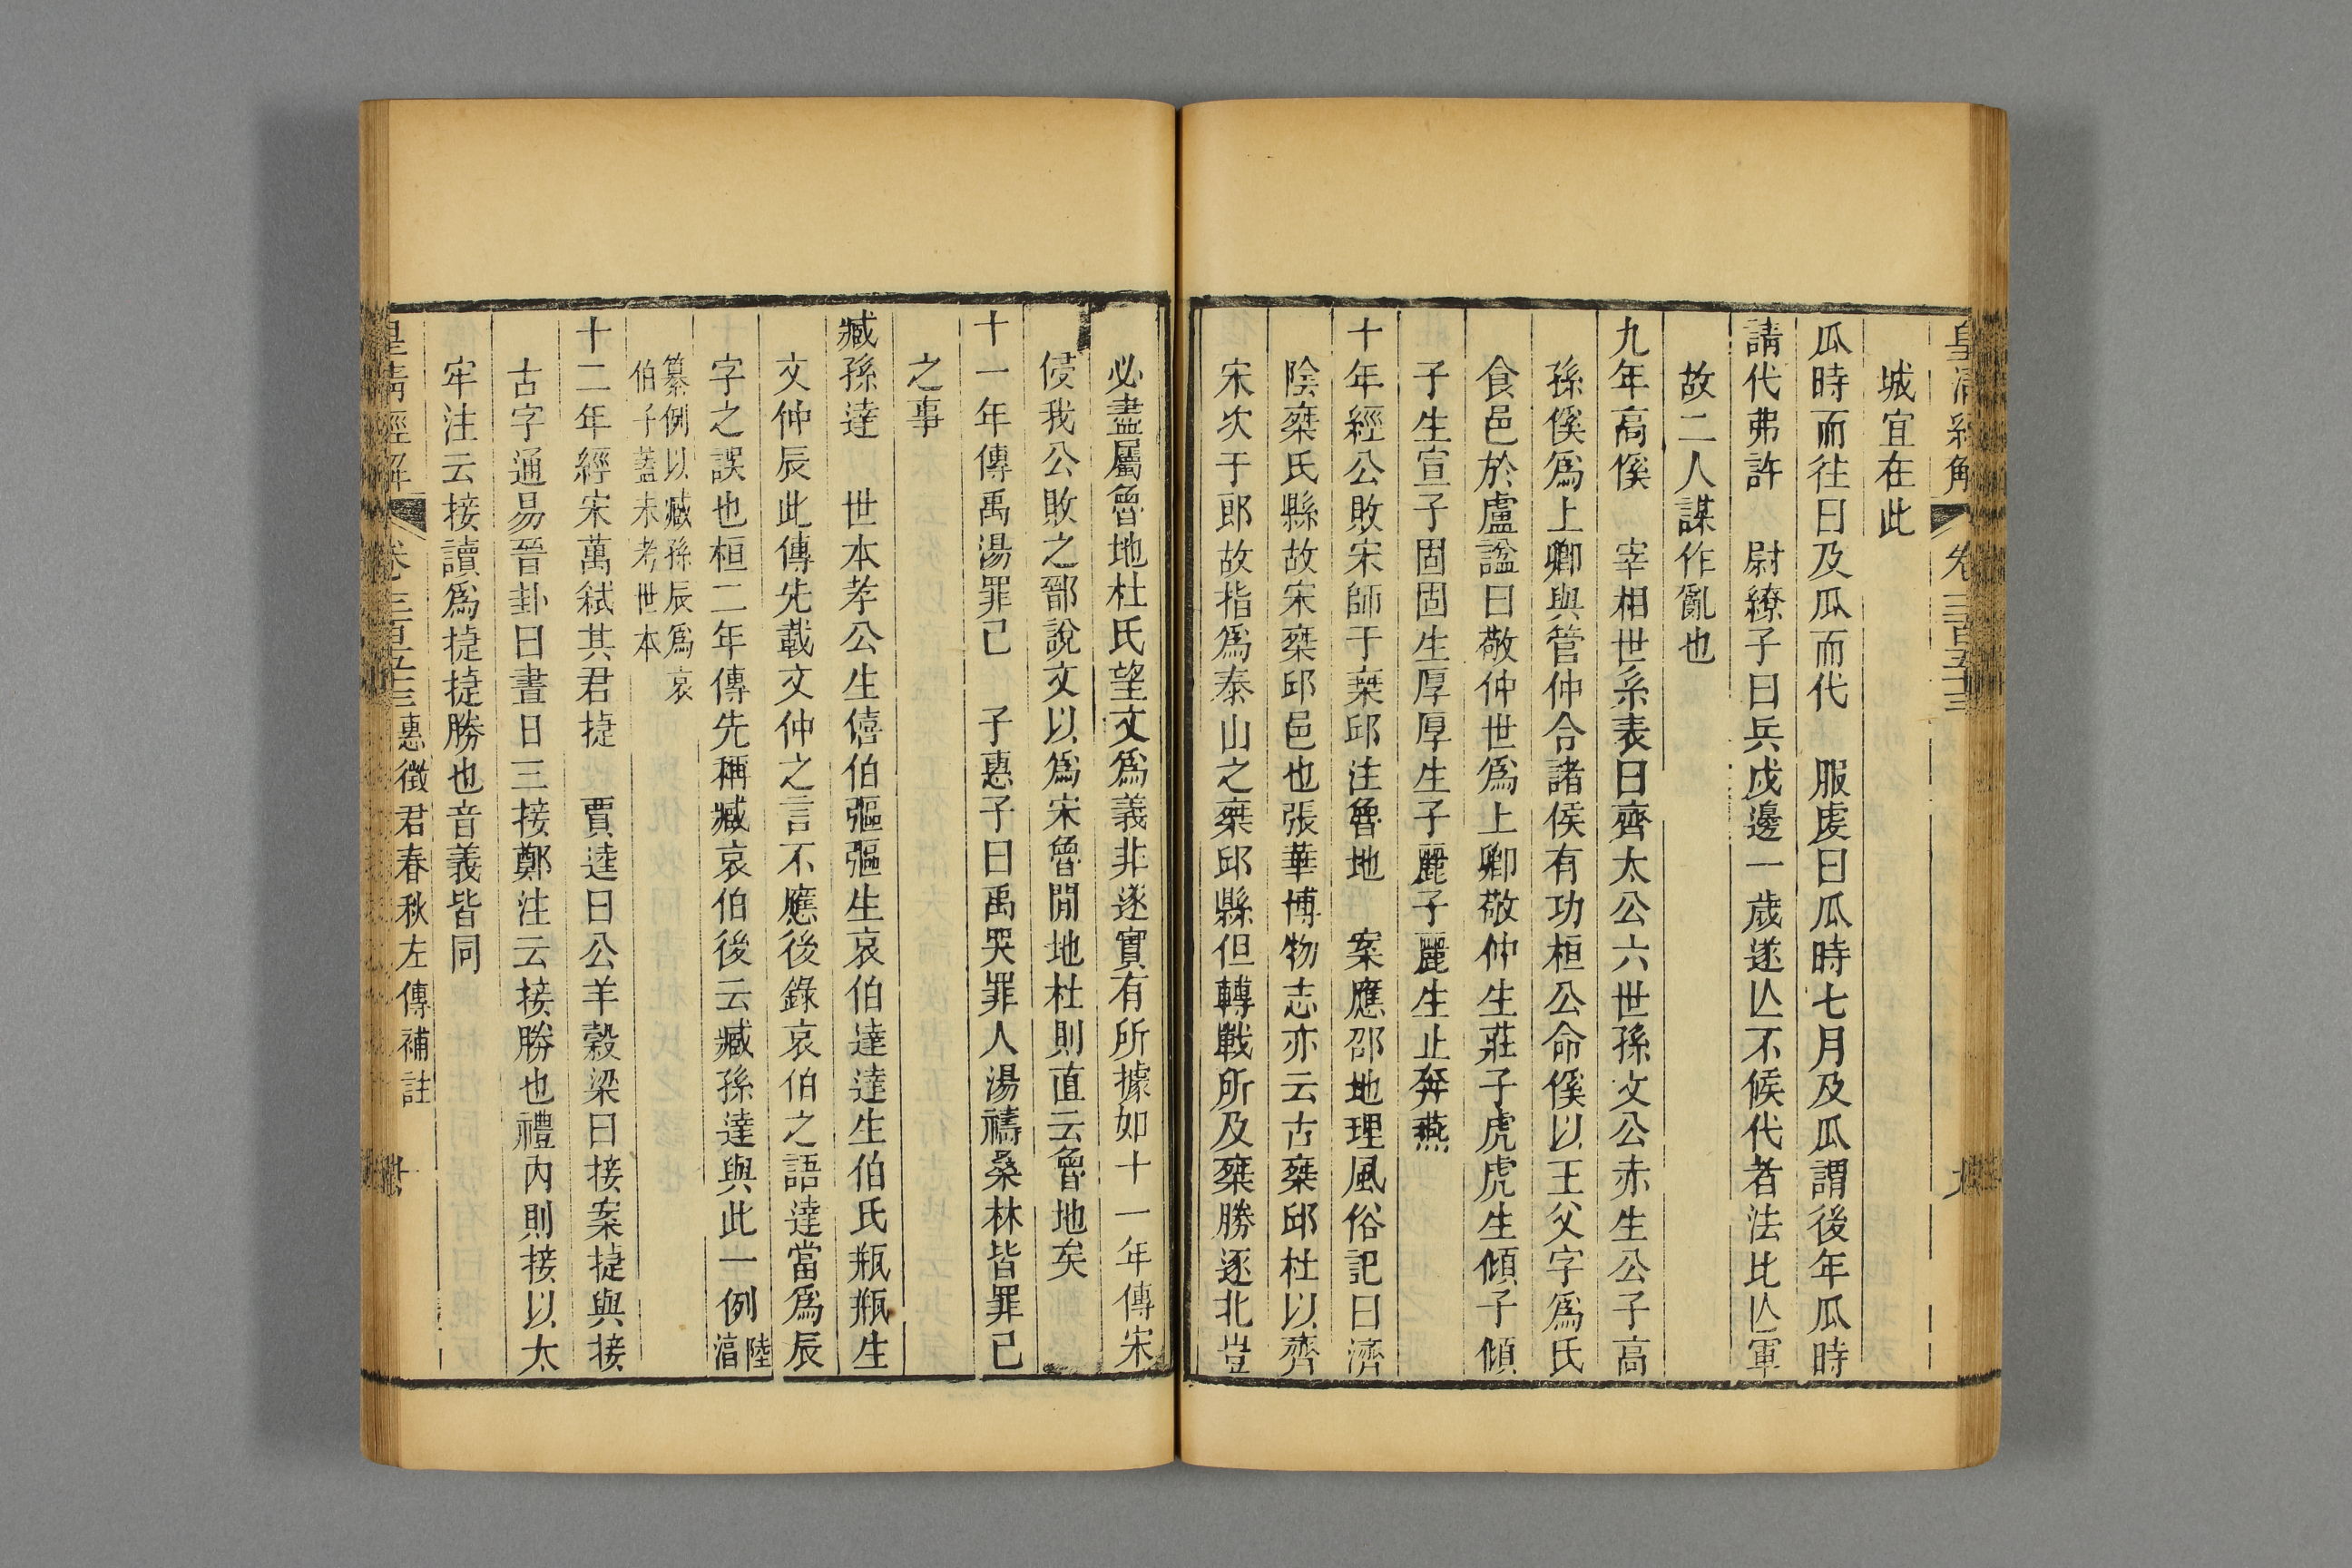 皇清經解 卷三百五十三
城宜在此
瓜時而往曰及瓜而代 服虔曰瓜時七月及瓜謂後年瓜時
請代弗許 尉繚子曰兵戍邊一歲遂亾不候代者法比亾軍
故二人謀作亂也
九年高傒 宰相世系表曰齊太公六世孫文公赤生公子高
孫傒爲上卿與管仲合諸侯有功桓公命傒以王父字爲氏
食邑於盧諡曰敬仲世爲上卿敬仲生莊子虎虎生傾子傾
子生宣子固固生厚厚生子麗子麗生止奔燕
十年經公敗宋師于椉邱注魯地 案應邵地理風俗記曰濟
陰椉氏縣故宋椉邱邑也張華博物志亦云古椉邱杜以齊
宋次于郎故指爲泰山之椉邱縣但轉戰所及椉勝逐北豈
必盡屬魯地杜氏望文爲義非逐實有所據如十一年傳宋
侵我公敗之鄑說文以爲宋魯閒地杜則直云魯地矣
十一年傳禹湯罪己 子惠子曰禹哭罪人湯禱桑林皆罪己
之事
臧孫達 世本孝公生僖伯彄彄生哀伯達達生伯氏瓶瓶生
文仲辰此傳先載文仲之言不應後錄哀伯之語達當爲辰
字之誤也桓二年傳先稱臧哀伯後云臧孫達與此一例陸淳
纂例以臧孫辰爲哀
伯子蓋未考世本
十二年經宋萬弒其君捷 賈逵曰公羊穀梁曰接案捷與接
古字通易晉卦曰晝日三接鄭注云接勝也禮内則接以太
牢注云接讀爲捷捷勝也音義皆同
皇清經解 卷三百五十三 惠徵君春秋左傳補註